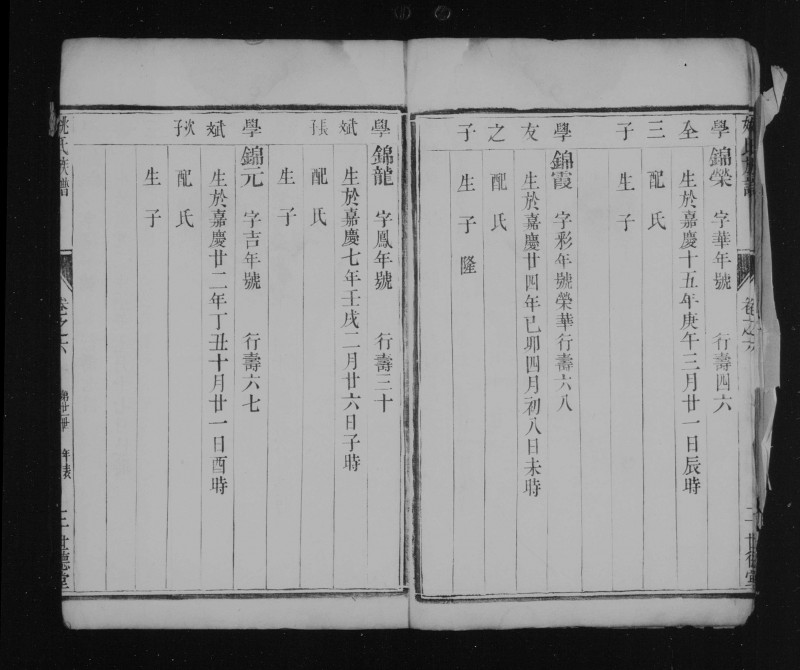 姚氏族譜
二 世德堂
學 錦榮 字華年號 行壽四六
全 生於嘉慶十五年庚午三月廿一日辰時
三 配氏
子 生子
學 錦霞 字彩年號榮華行壽六八
友 生於嘉慶廿四年己卯四月初八日未時
之 配氏
子 生子隆
學 錦龍 字鳳年號 行壽三十
斌 生於嘉慶七年壬戌二月廿六日子時
長 配氏
生子
學 錦元 字吉年號 行壽六七
斌 生於嘉慶廿二年丁丑十月廿一日酉時
次子 配氏
生子
姚氏族譜 卷之六 年表 三 世德堂